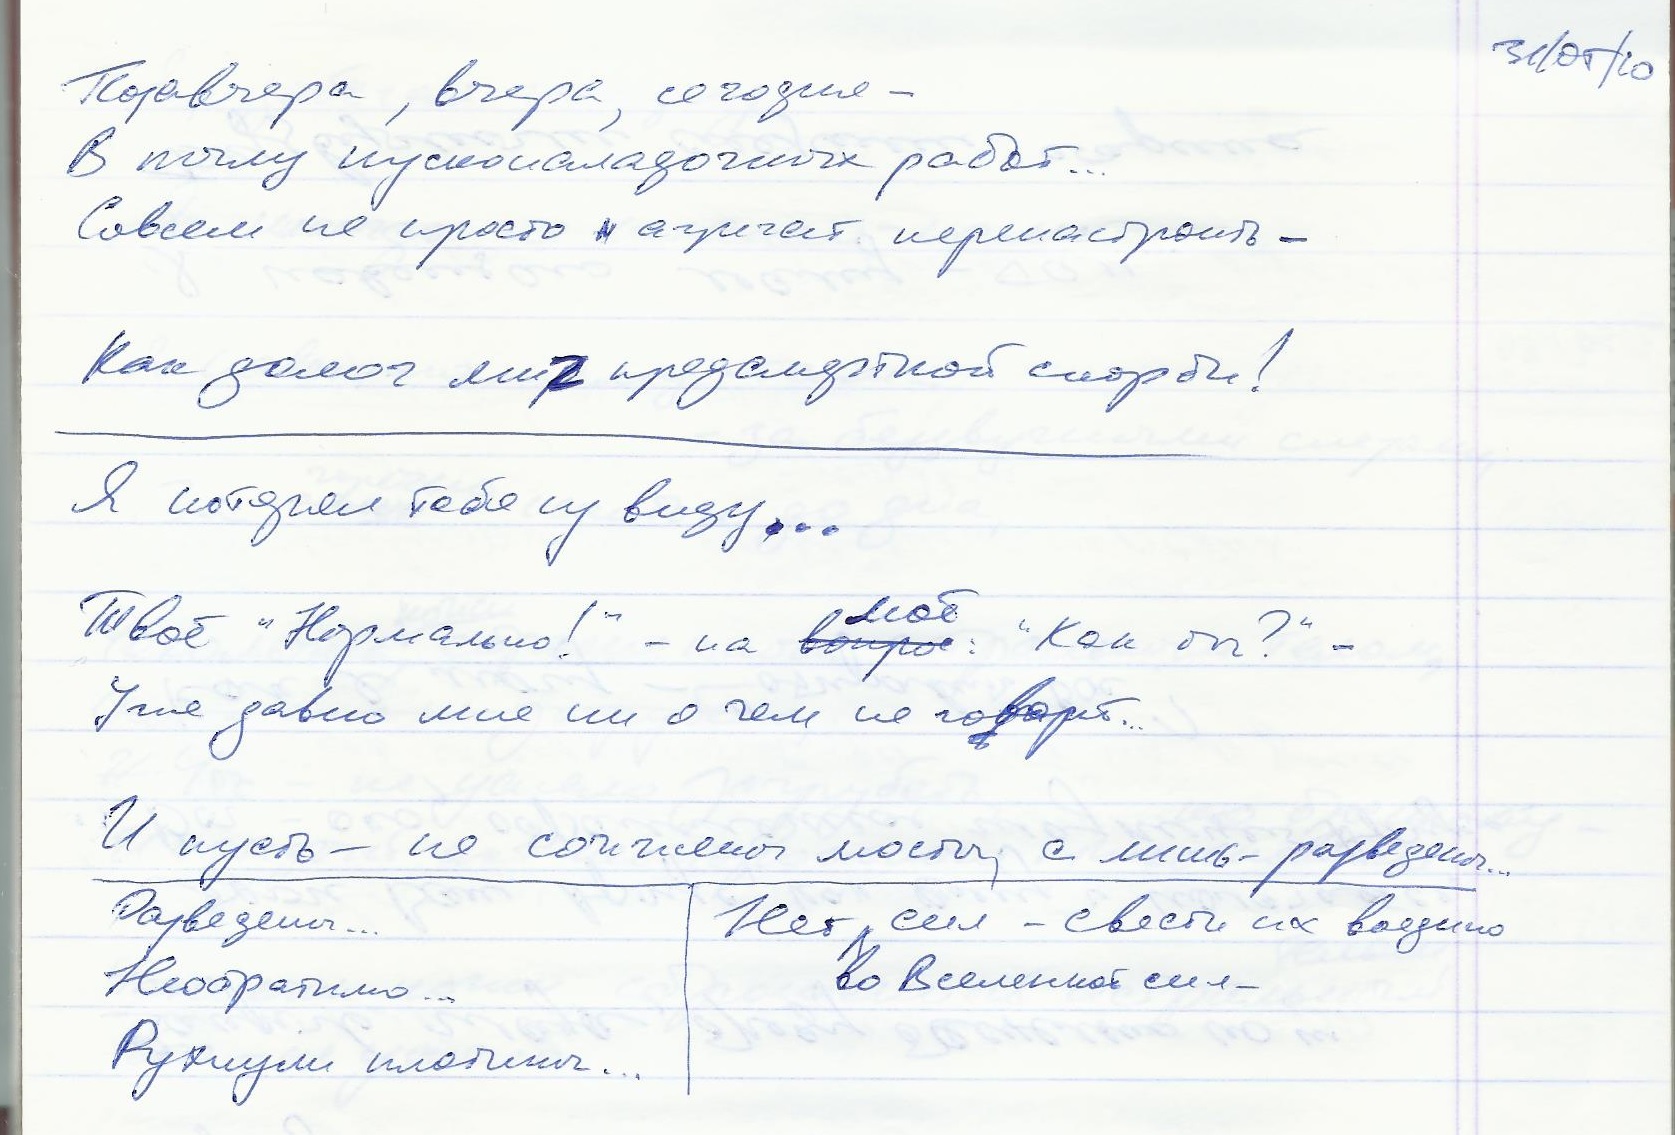 31/05/10
Позавчера, вчера, сегодня –
В пылу пусконаладочных работ...
Совсем не просто агрегат перенастроить –
Как долог миг предсмертной скорби!
Я потерял тебя из виду...
моё
Твоё "Нормально!" – на вопрос: "Как ты?" –
Уже давно мне ни о чем не говорит...
И пусть – не сожжены мосты, а лишь – разведены...
Разведены...
Необратимо...
Рухнули плотины...
Нет, сил – свести их воедино
во Вселенной сил –